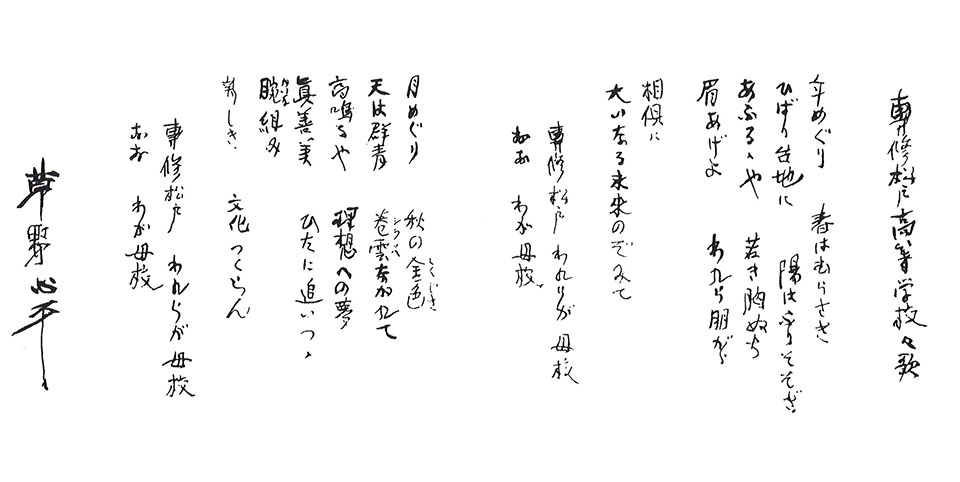 専修松戸高等学校々歌
年めぐり 春はむらさき
ひばり台地に 陽はふりそそぎ
あふるゝや 若き胸ぬち
眉あげよ われら朋がら
相倶に
大いなる未来のぞみて
専修松戸 われらが母校
おお わが母校
月めぐり 秋の金色
天は群青 巻雲ながれて
高鳴るや 理想への夢
眞善美 ひたに追いつゝ
腕組み
新しき 文化つくらん
専修松戸 われらが母校
おお わが母校
草野心平